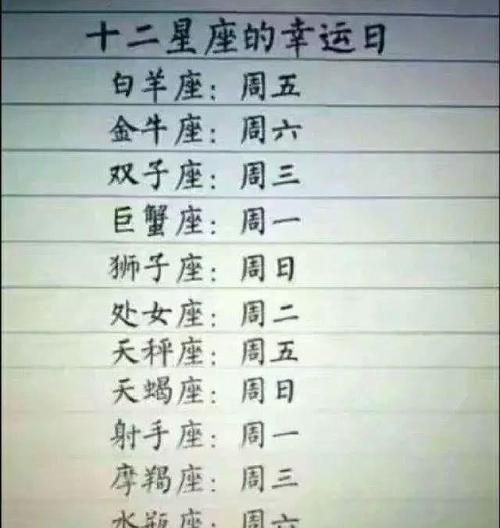 十二星座的幸运日
白羊座：周五
金牛座：周六
双子座：周三
巨蟹座：周一
狮子座：周日
处女座：周二
天秤座：周五
天蝎座：周日
射手座：周一
摩羯座：周三
水瓶座：周六